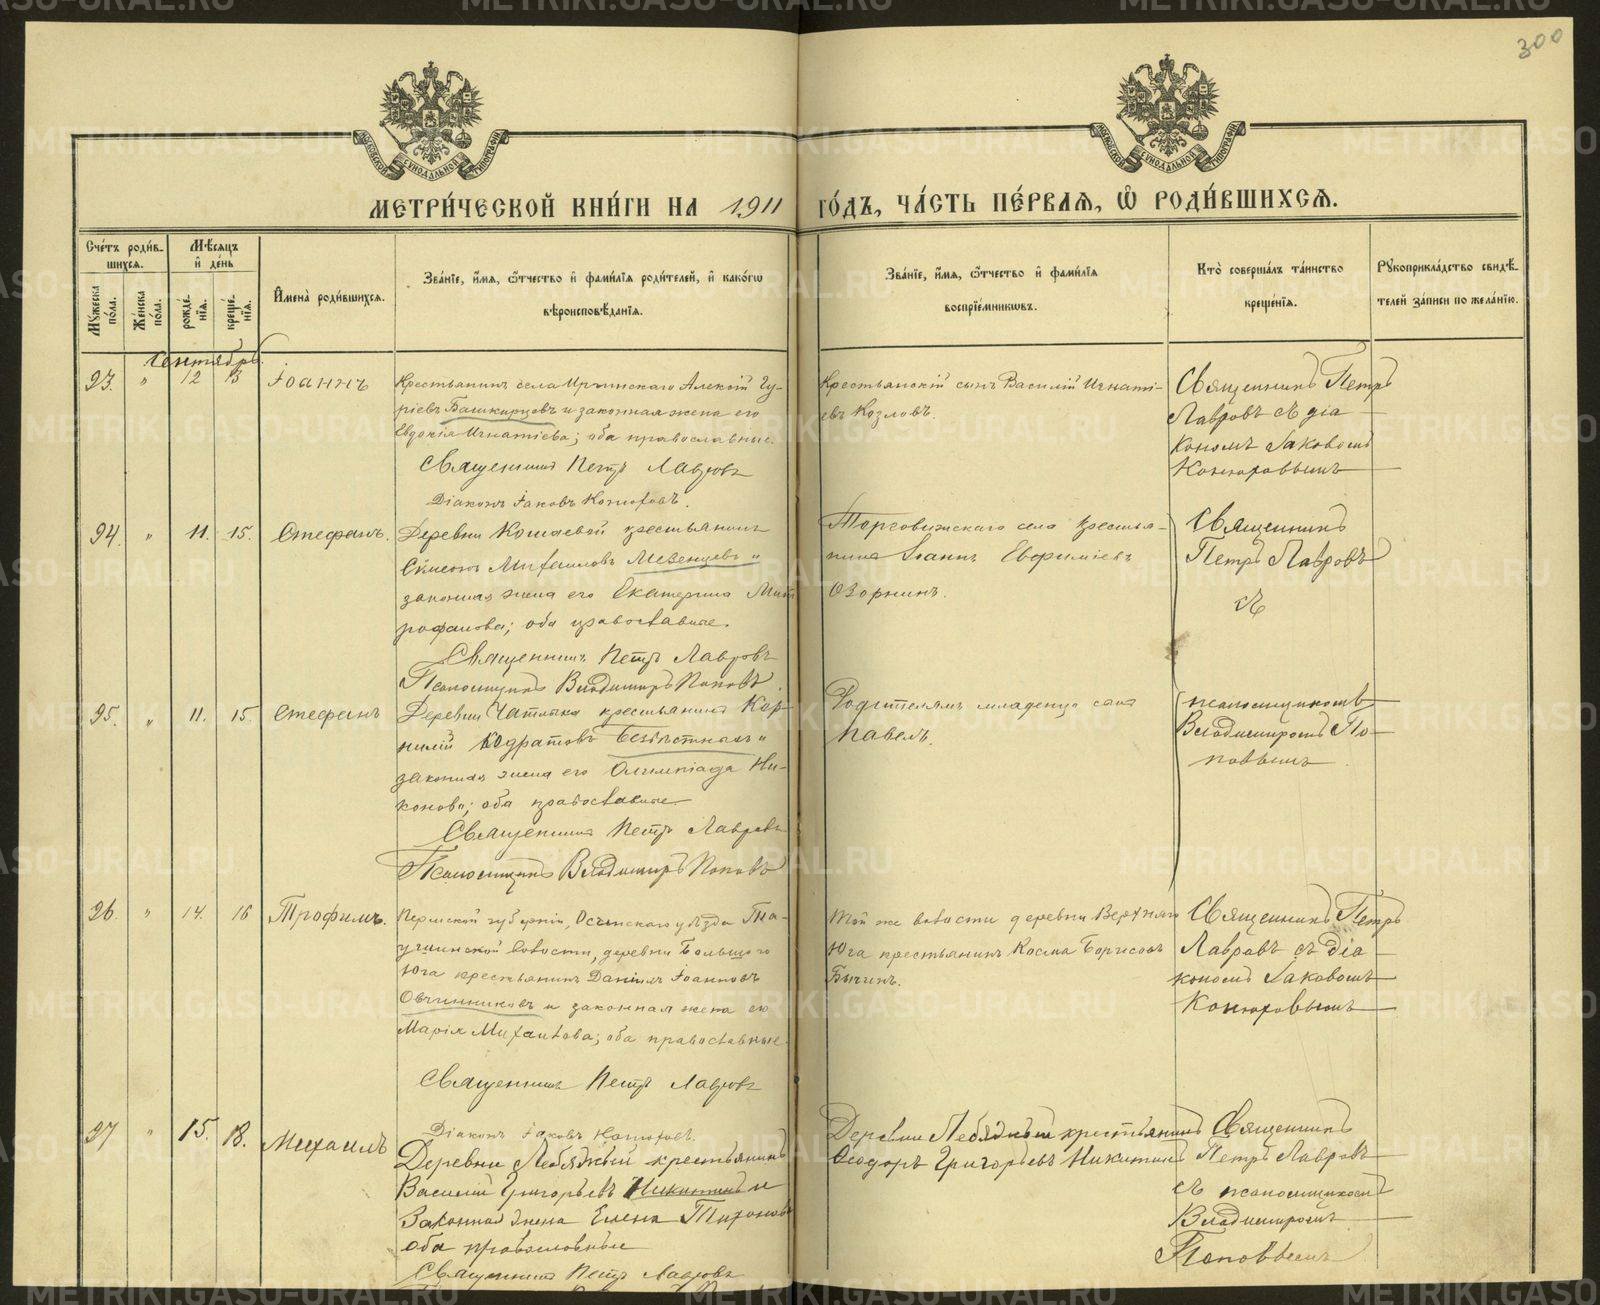 300
МОСКОВСКОЙ СУНОДАЛЬНОЙ ТИПОГРАФІИ
МОСКОВСКОЙ СУНОДАЛЬНОЙ ТИПОГРАФІИ
МЕТРИ́ЧЕСКОЙ КНИ́ГИ НА 1911 ГО́ДЪ, ЧА́СТЬ ПЕ́РВАЯ, Ѡ҆ РОДИ́ВШИХСЯ.
Сче́тъ роди́в-
шихся.
Мꙋ́жеска по́ла.
Же́нска по́ла.
Мѣ́сяцъ
и҆ де́нь
рожде́-
нія.
креще́-
нія.
И҆мена̀ роди́вшихся.
Зва́ніе, и҆́мя, ѻ҆́тчество и҆ фамиі́лія роди́телей, и҆ како́гѡ
вѣроисповѣ́данія.
Зва́ніе, и҆́мя, ѻ҆́тчество и҆ фамиі́лія
воспріе́мникѡвъ.
Кто̀ соверша́лъ та́инство
креще́нія.
Рꙋкоприкла́дство свидѣ́-
телей за́писи по жела́нію.
Сентябрь.
23. " 12 13 Іоаннъ
Крестьянинъ села Иргинскаго Алексій Гу-
ріевъ Башкирцевъ и законная жена его
Евдокія Игнатіева; оба православные.
Священникъ Петръ Лавровъ
Діаконъ Іаковъ Конюховъ.
Крестьянскій сынъ Василій Игнаті-
евъ Козловъ.
Священникъ Петръ
Лавровъ съ діа
кономъ Іаковомъ
Конюховымъ
24. " 11. 15. Стефанъ.
Деревни крестьянинъ
Симеонъ Михаиловъ Мезенцевъ и
законная жена его Екатерина Мит
рофанова; оба православные.
Священникъ Петръ Лавровъ
Псаломщикъ Владимиръ Поповъ.
Торговижскаго села крестья-
нинъ Іоаннъ Евфиміевъ
Озорнинъ.
Священникъ
Петръ Лавровъ
съ
25. " 11. 15. Стефанъ
Деревни крестьянинъ Кор
нилій Кодратовъ и
законная жена его Олимпіада Ни-
конова; оба православные
Священникъ Петръ Лавровъ
Псаломщикъ Владимиръ Поповъ
Родителямъ младенца сынъ
Павелъ.
псаломщикомъ
Владимиромъ По-
повымъ.
26. " 14. 16 Трофимъ.
Пермской губерніи, Осинскаго уѣзда
волости, деревни Большого
Юга крестьянинъ Даніилъ Іоанновъ
Овчинниковъ и законная жена его
Марія Михаилова; оба православные.
Священникъ Петръ Лавровъ
Діаконъ Іаковъ Конюховъ.
Той же волости деревни Верхняго
Юга крестьянинъ Косма Борисовъ
Бычинъ.
Священникъ Петръ
Лавровъ съ діа
кономъ Іаковомъ
Конюховымъ
27 " 15. 18. Михаилъ
Деревни Лебяжьей крестьянинъ
Василій Григорьевъ Никитинъ и
Законная жена Елена Тихонова
оба православные
Священникъ Петръ Лавровъ
Деревни Лебяжьей крестьянинъ
Ѳеодоръ Григорьевъ Никитинъ
Священникъ
Петръ Лавровъ
съ псаломщикомъ
Владимиромъ
Поповымъ
METRIKI.GASO-URAL.RU